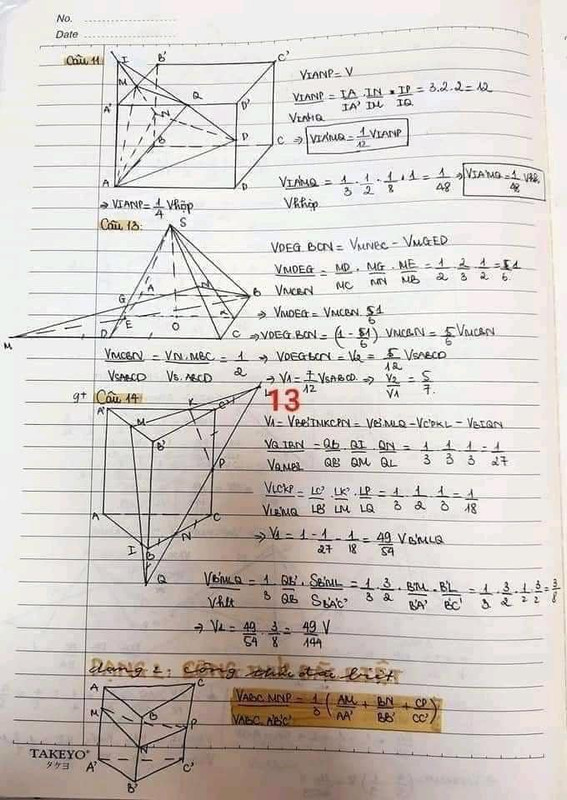 No.
Date
Câu 11
I B' C'
M Q
A' D'
N P
B C
A D
VIANP = V
VIANP / VIA'MQ = IA/IA' . IN/IM . IP/IQ = 3.2.2 = 12
⇒ VIA'MQ = 1/12 VIANP
VIA'MQ / Vhhộp = 1/3 . 1/2 . 1/8 . 1 = 1/48 ⇒ VIA'MQ = 1/48 Vhh
⇒ VIANP = 1/4 Vhộp
Câu 13:
S
A N B
G
E
M D O C
VDEG.BCN = VMNBC - VMGED
VMDEG / VMCBN = MD/MC . MG/MN . ME/MB = 1/2 . 2/3 . 1/2 = 1/6
⇒ VMDEG = VMCBN . 1/6
⇒ VDEG.BCN = (1 - 1/6) VMCBN = 5/6 VMCBN
VMCBN / VSABCD = VN.MBC / VS.ABCD = 1/2 ⇒ VDEGBCN = V2 = 5/12 VSABCD
⇒ V1 = 7/12 VSABCD ⇒ V2/V1 = 5/7.
13
9+ Câu 14
A' K C' L
M
B'
P
A C
I N
B
Q
V1 = VBB'INKCPN = VB'MLQ - VC'PKL - VBIQN
VQIBN / VQMBL = QB/QB' . QI/QM . QN/QL = 1/3 . 1/3 . 1/3 = 1/27
VLC'KP / VLB'MQ = LC'/LB' . LK/LM . LP/LQ = 1/3 . 1/2 . 1/3 = 1/18
⇒ V1 = 1 - 1/27 - 1/18 = 49/54 VB'MLQ
VB'MLQ / Vhlt = 1/3 . QB'/QB . SB'ML / SB'A'C' = 1/3 . 3/2 . B'M/B'A' . B'L/B'C' = 1/3 . 3/2 . 1/2 . 3/2 = 3/8
⇒ V1 = 49/54 . 3/8 = 49/144 V
A C
M B P
N
A' C'
B'
VABC.MNP / VABC.A'B'C' = 1/3 (AM/AA' + BN/BB' + CP/CC')
TAKEYO®
タケヨ